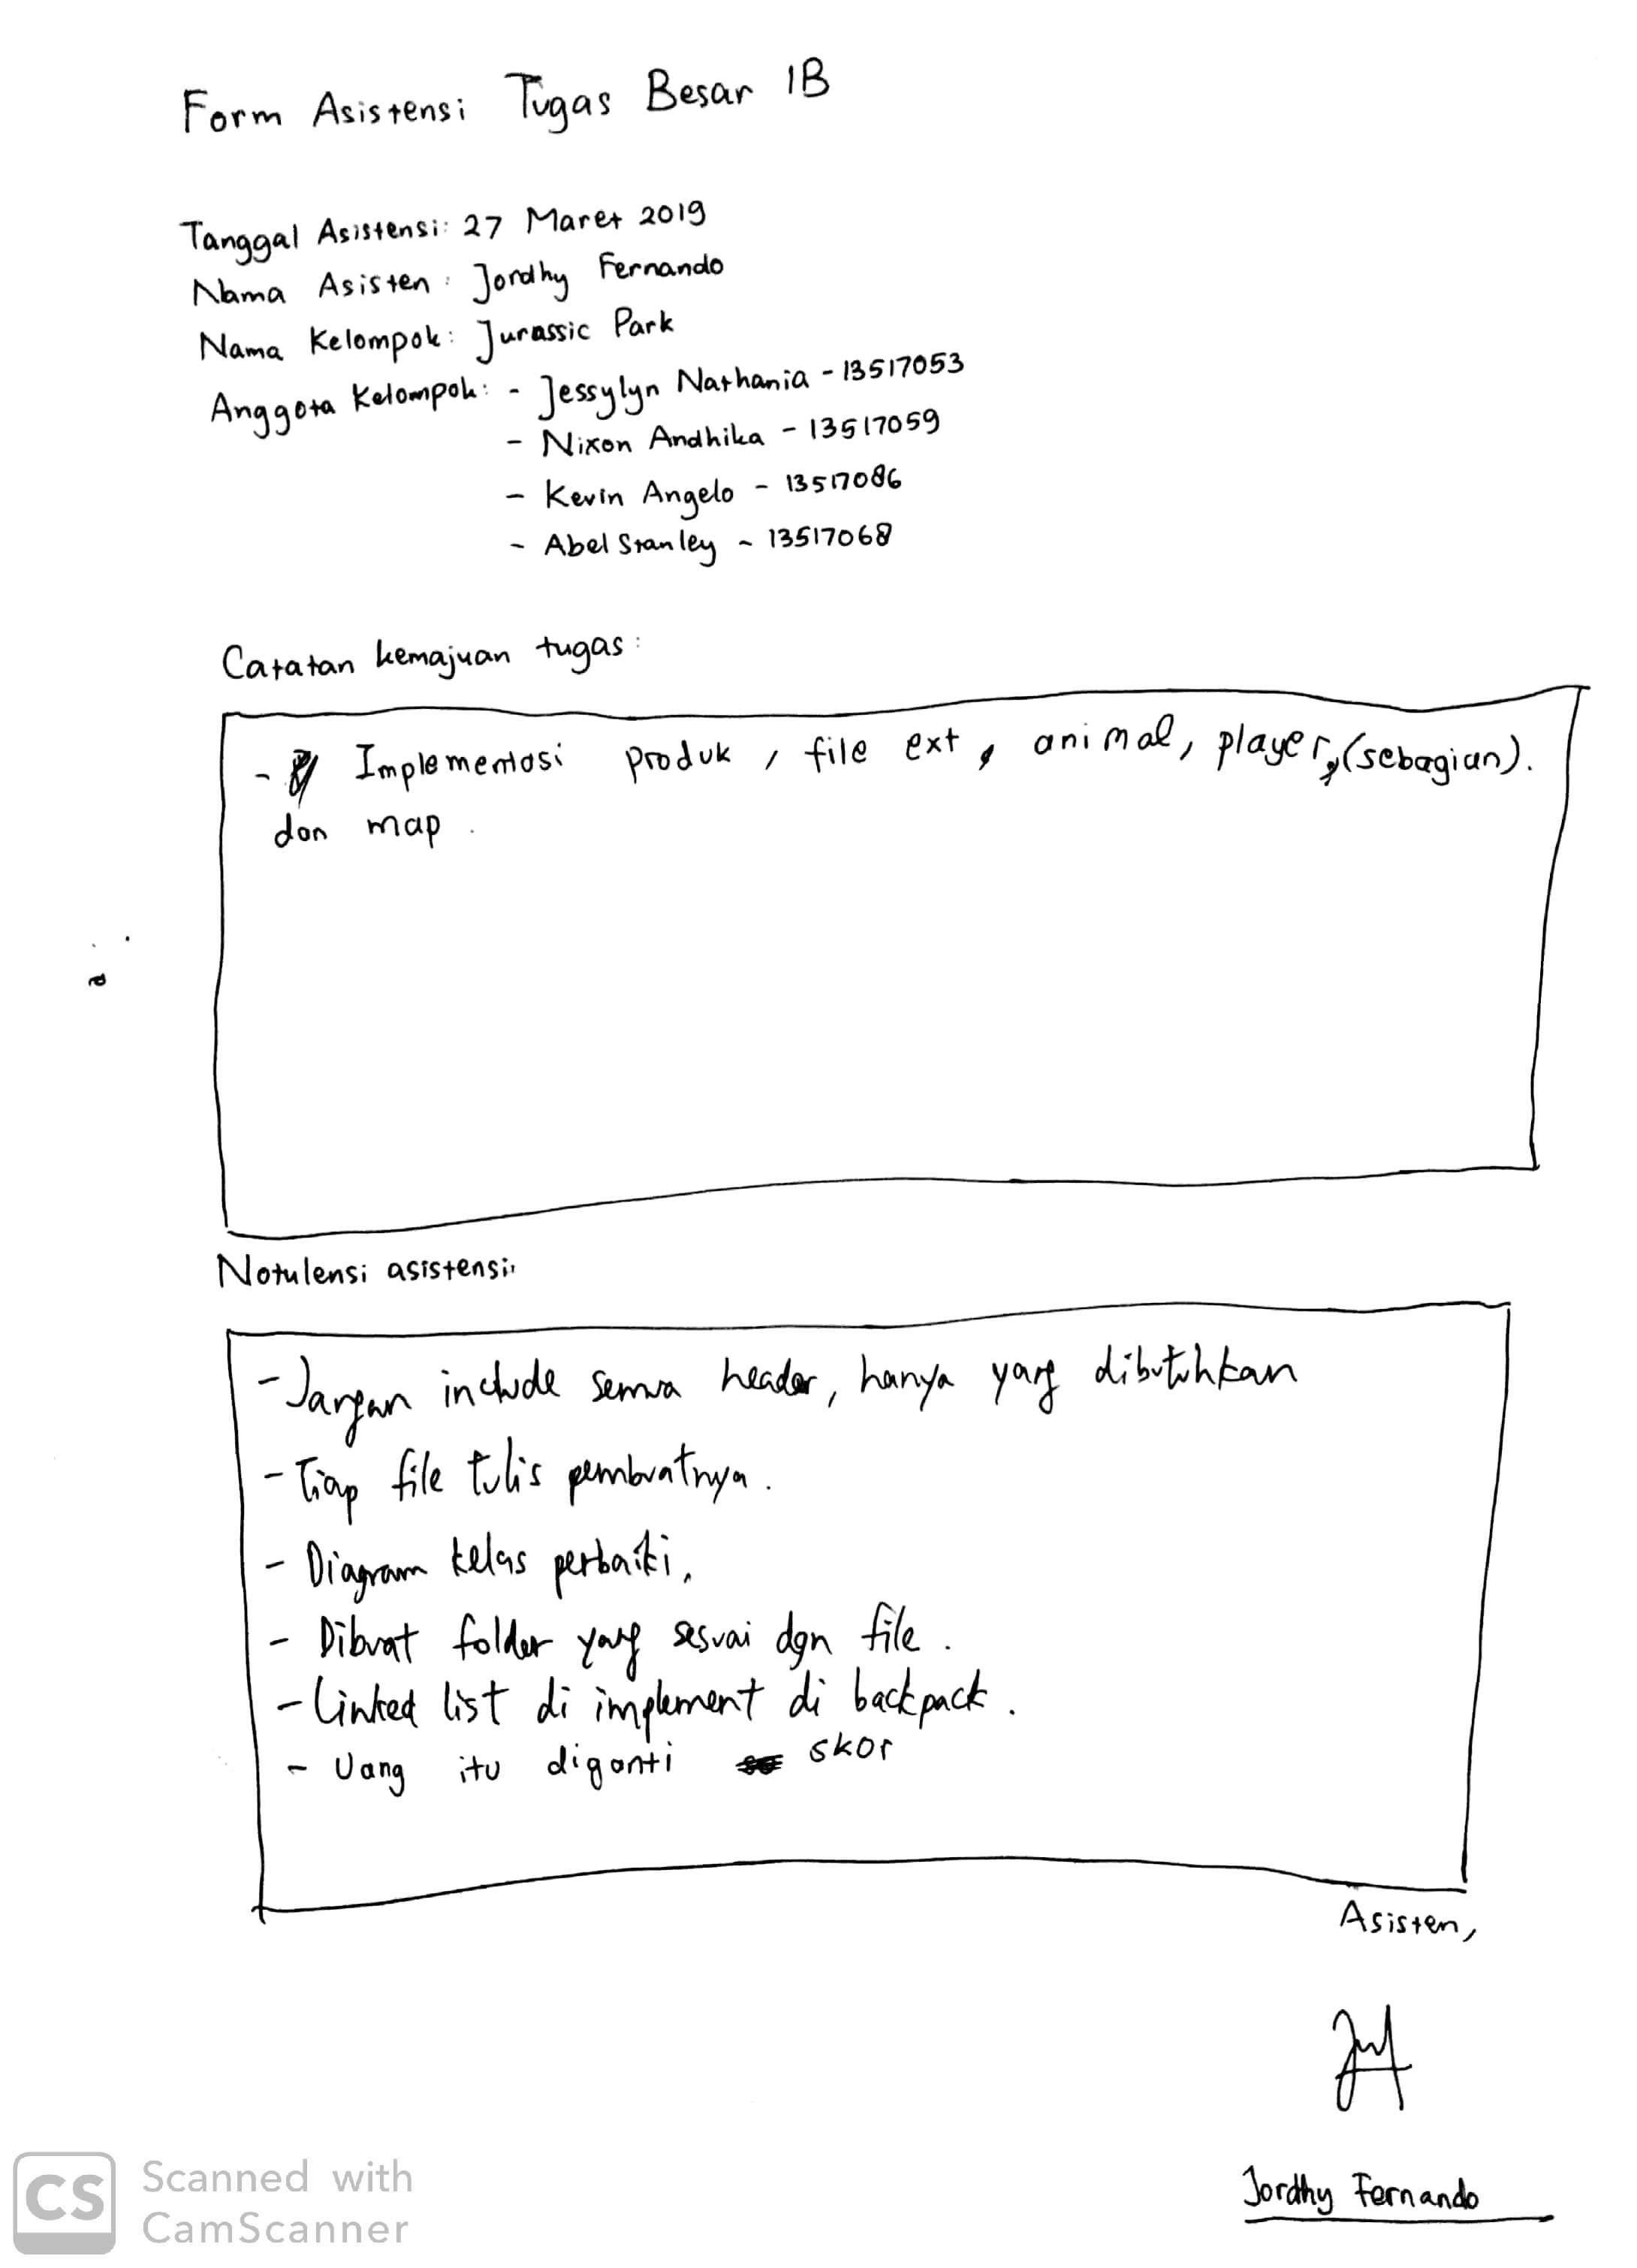 Form Asistensi Tugas Besar 1B
Tanggal Asistensi: 27 Maret 2019
Nama Asisten: Jordhy Fernando
Nama Kelompok: Jurassic Park
Anggota Kelompok: - Jessylyn Nathania - 13517053
- Nixon Andhika - 13517059
- Kevin Angelo - 13517086
- Abel Stanley - 13517068
Catatan kemajuan tugas:
- Implementasi produk, file ext, animal, player, (sebagian).
dan map.
Notulensi asistensi:
- Jangan include semua header, hanya yang dibutuhkan
- Tiap file tulis pembuatnya.
- Diagram kelas perbaiki.
- Dibuat folder yang sesuai dgn file.
- Linked list di implement di backpack.
- Uang itu diganti skor
Asisten,
Jordhy Fernando
CS Scanned with
CamScanner